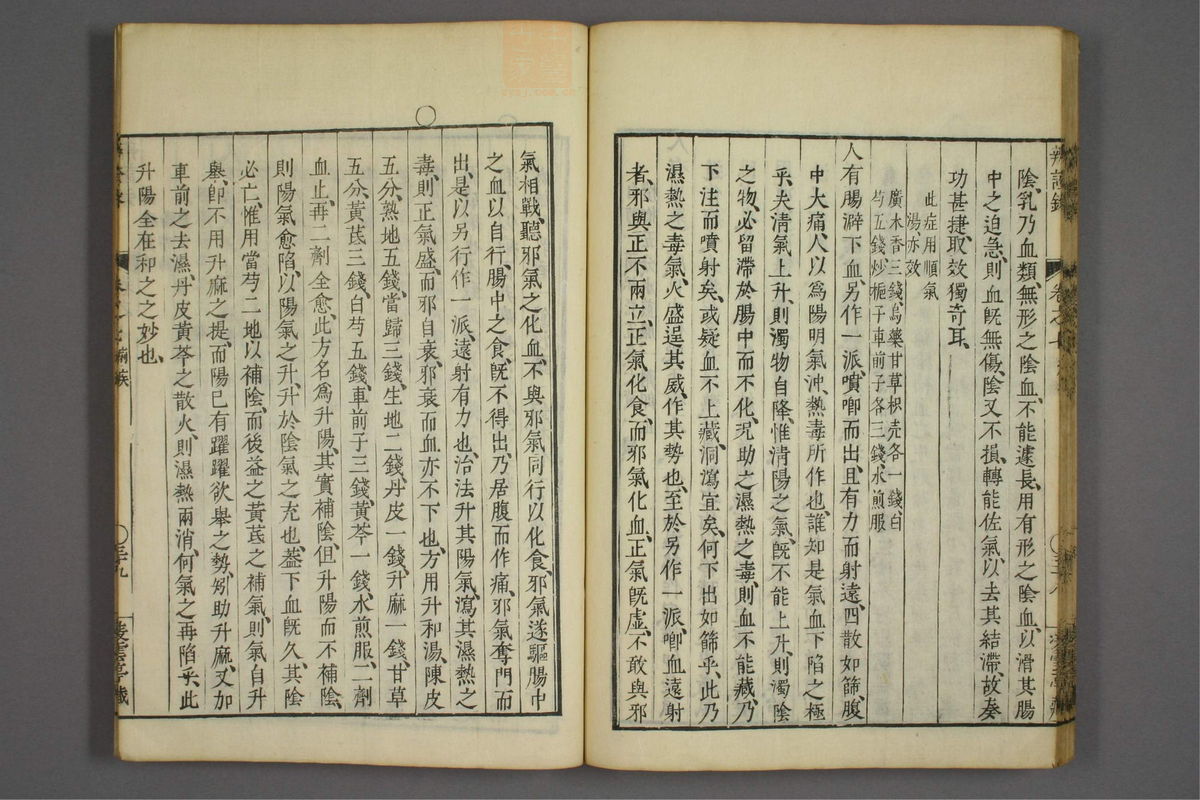 辨證錄 卷之七
陰、乳乃血類、無形之陰血、不能遽長、用有形之陰血、以滑其腸
中之迫急、則血既無傷、陰又不損、轉能佐氣、以去其結滯、故奏
功甚捷、取效獨奇耳、
此症用順氣
湯亦效
廣木香三錢、烏藥甘草枳壳各一錢、白
芍五錢、炒梔子車前子各三錢、水煎服
人有腸澼下血、另作一派、噴唧而出、且有力而射遠、四散如篩、腹
中大痛、人以爲陽明氣沖、熱毒所作也、誰知是氣血下陷之極
乎、夫清氣上升、則濁物自降、惟清陽之氣、既不能上升、則濁陰
之物、必留滯於腸中而不化、况助之濕熱之毒、則血不能藏、乃
下注而噴射矣、或疑血不上藏、洞瀉宜矣、何下出如篩乎、此乃
濕熱之毒氣、火盛逞其威、作其勢也、至於另作一派、唧血遠射
者、邪與正不兩立、正氣化食、而邪氣化血、正氣既虛、不敢與邪
氣相戰、聽邪氣之化血、不與邪氣同行以化食、邪氣遂驅腸中
之血以自行、腸中之食、既不得出、乃居腹而作痛、邪氣奪門而
出、是以另行作一派、遠射有力也、治法升其陽氣、瀉其濕熱之
毒、則正氣盛、而邪自衰、邪衰而血亦不下也、方用升和湯、陳皮
五分、熟地五錢、當歸三錢、生地二錢、丹皮一錢、升麻一錢、甘草
五分、黃芪三錢、白芍五錢、車前子三錢、黃芩一錢、水煎服、二劑
血止、再二劑全愈、此方名爲升陽、其實補陰、但升陽而不補陰、
則陽氣愈陷、以陽氣之升、升於陰氣之充也、葢下血既久、其陰
必亡、惟用當芍二地以補陰、而後益之黃芪之補氣、則氣自升
舉、卽不用升麻之提、而陽已有躍躍欲舉之勢、矧助升麻、又加
車前之去濕、丹皮黃芩之散火、則濕熱兩消、何氣之再陷乎、此
升陽全在和之之妙也、
卷之七 痢疾 三九